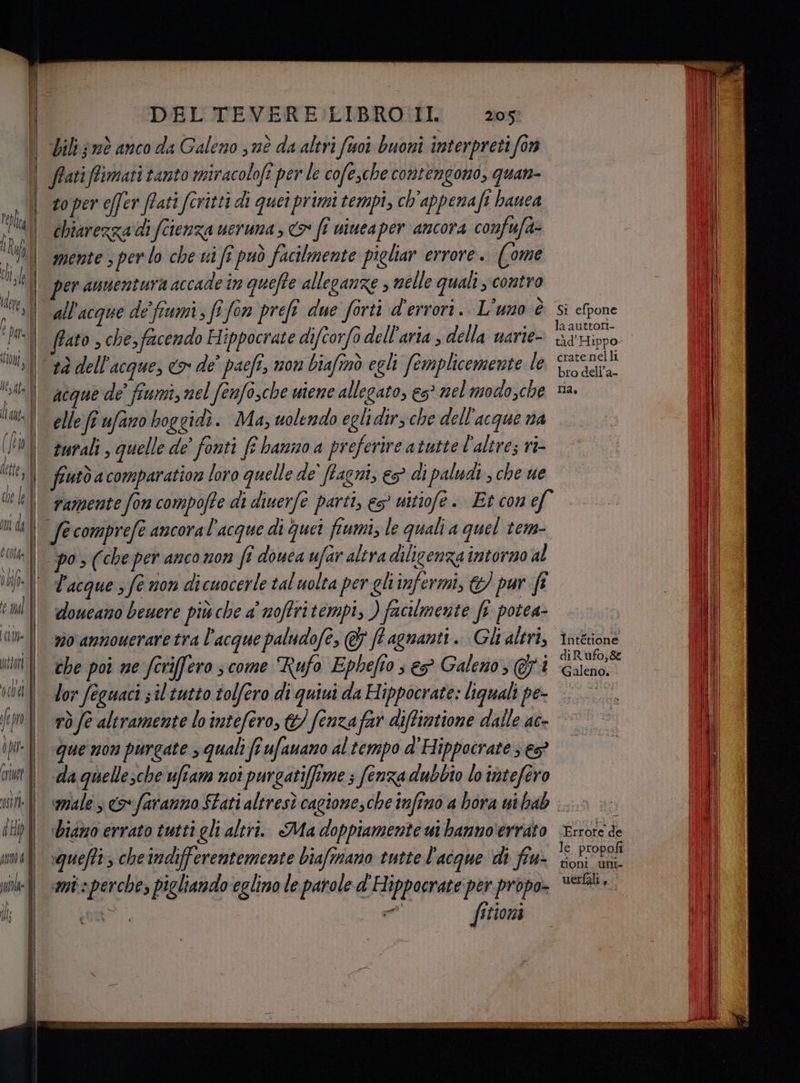 DEL TEVERE LIBRO II. 205
bili; nè anco da Galeno, nè da altri ſuoi buoni interpreti ſon
ſtati ſtimati tanto miracoloſi per le coſe, che contengono, quan-
to per eſſer ſtati ſcritti di quei primi tempi, ch'appena ſi hauea
chiarezza di ſcienza ueruna, & ſi uiuea per ancora confuſa-
mente, per lo che ui ſi può facilmente pigliar errore. Come
per auuentura accade in queſte alleganze, nelle quali, contro
all'acque de' fiumi, ſi ſon preſi due forti d'errori. L'uno è
ſtato, che, facendo Hippocrate diſcorſo dell'aria, della uarie-
tà dell'acque, & de' paeſi, non biaſmò egli ſemplicemente le
acque de' fiumi, nel ſenſo, che uiene allegato, & nel modo, che
elle ſi uſano hoggidì. Ma, uolendo egli dir, che dell'acque na
turali, quelle de' fonti ſi hanno a preferire a tutte l'altre; ri-
fiutò a comparation loro quelle de' ſtagni, & di paludi, che ue
ramente ſon compoſte di diuerſe parti, & uitioſe. Et con eſ
ſe compreſe ancora l'acque di quei fiumi, le quali a quel tem-
po, (che per anco non ſi douea uſar altra diligenza intorno al
l'acque, ſe non di cuocerle tal uolta per gli infermi, & pur ſi
doueano beuere più che a' noſtri tempi, ) facilmente ſi potea-
no annouerare tra l'acque paludoſe, & ſtagnanti. Gli altri,
che poi ne ſcriſſero, come Rufo Epheſio, & Galeno, & i
lor ſeguaci; il tutto tolſero di quiui da Hippocrate: li quali pe-
rò ſe altramente lo inteſero, & ſenza far diſtintione dalle ac-
que non purgate, quali ſi uſauano al tempo d'Hippocrate, &
da quelle, che uſiam noi purgatiſſime; ſenza dubbio lo inteſero
male, & faranno ſtati altresì cagione, che inſino a hora ui hab
biano errato tutti gli altri. Ma doppiamente ui hanno errato
queſti, che indifferentemente biaſmano tutte l'acque di fiu-
mi: perche, pigliando eglino le parole d'Hippocrate per propo-
ſitioni
Si eſpone
la auttori-
tà d'Hippo-
crate nel li
bro dell'a-
ria.
Intétione
di Rufo, &
Galeno.
Errore de
le propoſi
tioni uni-
uerſali.